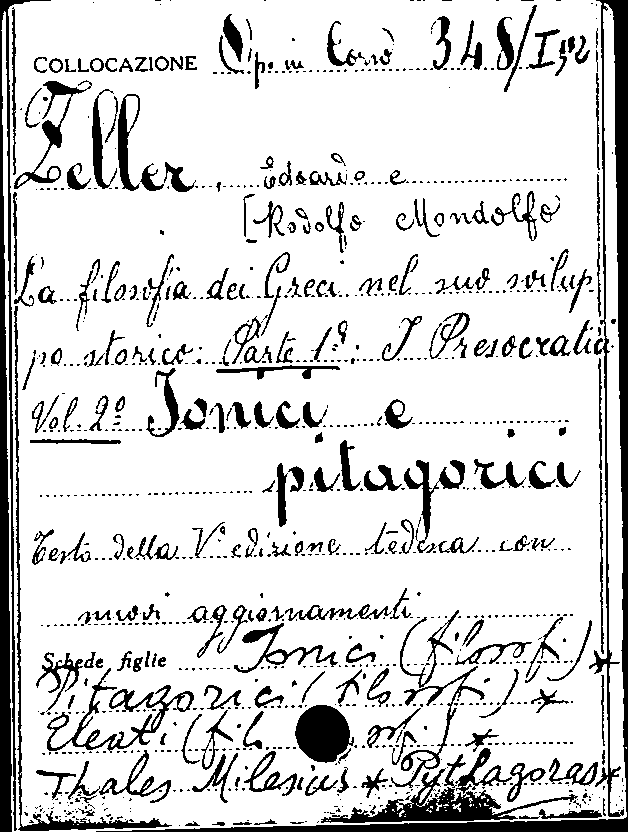 COLLOCAZIONE Op. in Corso 348/I,2
Zeller, Edoardo e
[Rodolfo Mondolfo
La filosofia dei Greci nel suo svilup
po storico: Parte 1ª: I Presocratici
Vol. 2º Ionici e
pitagorici
Testo della Vª edizione tedesca con
nuovi aggiornamenti
Schede figlie Ionici (filosofi) *
Pitagorici (filosofi) *
Eleati (filosofi) *
Thales Milesius * Pythagoras *